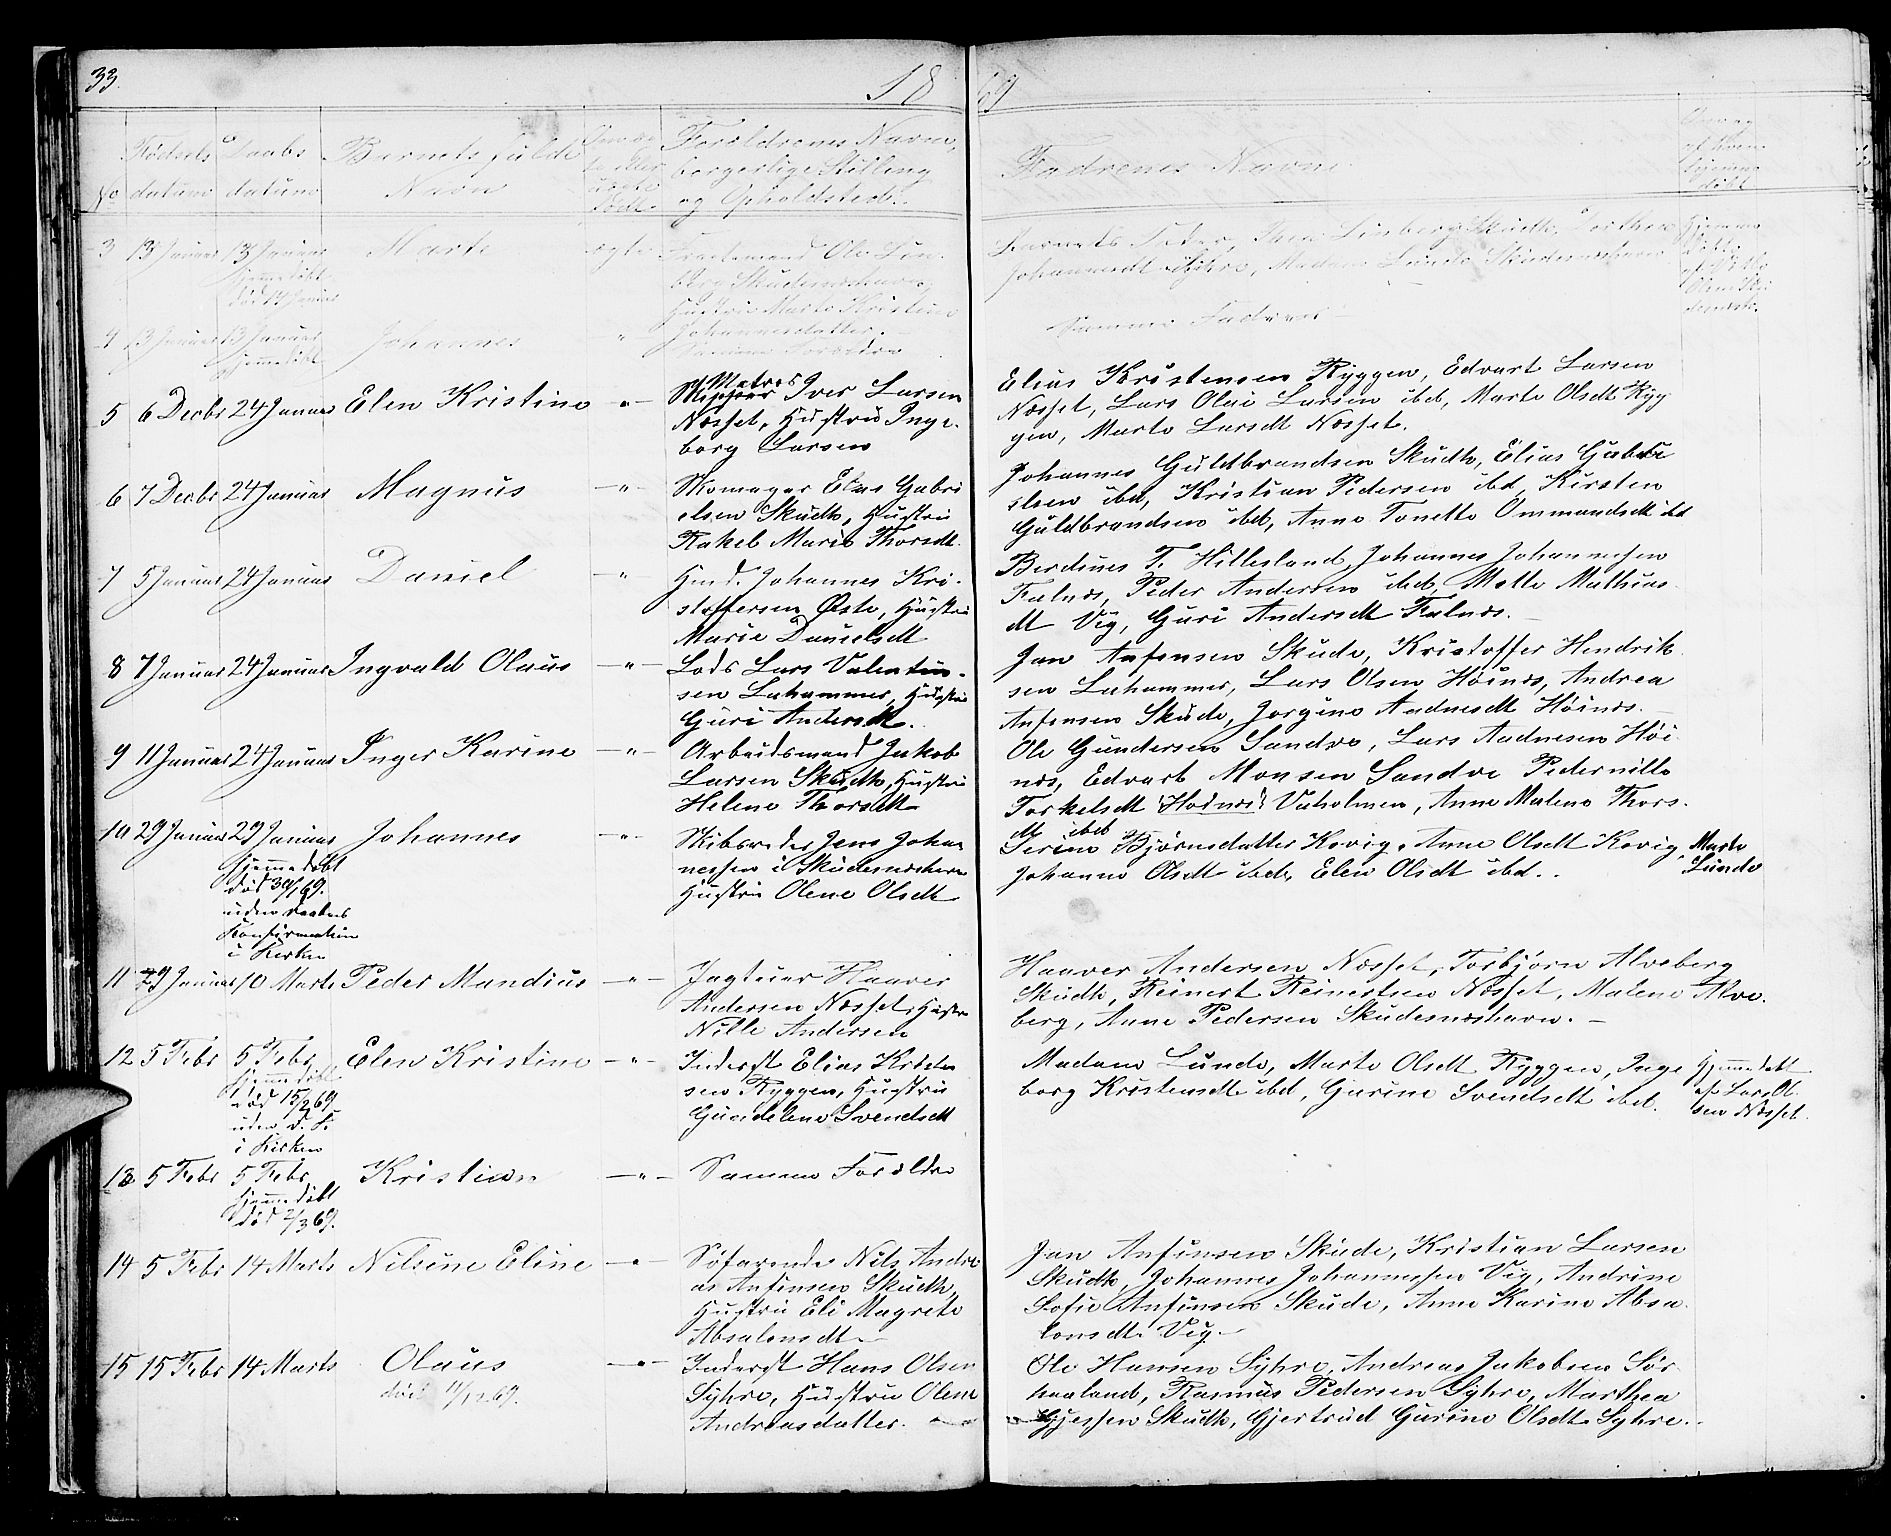 33.
18
69
No
Fødsels
datum
Daabs
datum
Barnets fulde
Navn
Forældrenes Navne,
borgerlige Stilling
og Opholdsted.
Fadrenes Navne.
3 13 Januar 13 Januar Marte ægte
hjemmedøbt
død 14 Januar
Ole Lin
berg Skudesneshavn,
Hustru Marte Kristine
Johannesdatter.
Barnets Fader, Linberg Skudth, Dorthea
Madam Lunde Skudesneshavn
Hjemme
døbt
4 13 Januar 13 Januar Johannes "
hjemmedøbt
Samme Forældre
Samme Faddere
5 6 Decbr 24 Januar Elen Kristine - " -
Matros
Skipper Iver Larsen
Næsset, Hustru Inge-
borg Larsen
Elias Kristensen Ryggen, Edvart Larsen
Næsset, Lars Olai Larsen ibd, Marte Olsdt Ryg
gen, Marte Larsdt Næsset.
6 7 Decbr 24 Januar Magnus - " -
Skomager Elias Gabri
elsen Skudth, Hustru
Rakel Marie Thorsdt.
Johannes Guldbrandsen Skudth, Elias Gabri
elsen ibd, Kristian Pedersen ibd, Kirsten
Guldbrandsen ibd, Anne Tonette Ommundsdt ibd
7 5 Januar 24 Januar Daniel - " -
Hmd. Johannes Kri-
stoffersen Øste, Hustru
Marie Danielsdt
Berdines T. Hillesland, Johannes Johannessen
Falnes, Peder Andersen ibd, Mette Mathias-
dt Vig, Guri Andersdt Falnes.
8 7 Januar 24 Januar Ingvald Olaus - " -
Lods Lars Valentin-
sen Lahammer, Hustru
Guri Andersdt.
Jan Anfensen Skude, Kristoffer Hendrik-
sen Lahammer, Lars Olsen Høines, Andrea
Anfensen Skude, Jorgine Aadnesdt Høines.
9 11 Januar 24 Januar Inger Karine - " -
Arbeidsmand Jakob
Larsen Skudth, Hustru
Helene Thorsdt
Ole Gundersen Sandve, Lars Aadnesen Høi-
nes, Edvart Monsen Sandve Pedernille
Torkelsdt Hodnes Vaholmen, Anne Malene Thors-
dt ibd
10 29 Januar 29 Januar Johannes - " -
hjemmedøbt
død 30/1 69.
uden Daabens
Konfirmation
i Kirken
Skibsreder Jens Johan
nessen i Skudesneshavn
Hustru Olene Olsdt
Serine Bjørnsdatter Kovig, Anne Olsdt Kovig,
Johanne Olsdt ibd, Elen Olsdt ibd.
Marte
Lunde
11 29 Januar 10 Marts Peder Mandius - " -
Jagteier Haaver
Andersen Næsset, Hustru
Nille Andersen
Haaver Andersen Næsset, Torbjørn Alveberg
Skudth, Reinert Reinertsen Næsset, Malene Alve-
berg, Anne Pedersen Skudesneshavn. -
12 5 Febr 5 Febr Elen Kristine - " -
hjemmedøbt
død 15/2 69
uden D. K.
i Kirken
Inderst Elias Kristen
sen Ryggen, Hustru
Gundelene Svendsdt
Madam Lunde, Marte Olsdt Ryggen, Inge
borg Kristensdt ibd, Gurine Svendsdt ibd.
Hjemmedøbt
af Lars Ol-
sen Næsset.
13 5 Febr 5 Febr Kristian - " -
hjemmedøbt
død 2/3 69.
Samme Forældre
14 5 Febr 14 Marts Nilsine Eline - " -
Søfarende Nils Andre
as Anfinsen Skudth,
Hustru Eli Magrete
Absalonsdt
Jan Anfinsen Skude, Kristian Larsen
Skudth, Johannes Johannessen Vig, Andrine
Sofie Anfinsen Skude, Anne Karine Absa-
lonsdt Vig.
15 15 Febr 14 Marts Olaus - " -
død 11/12 69.
Inderst Hans Olsen
Syhre, Hustru Olene
Andreasdatter.
Ole Hansen Syhre, Andreas Jakobsen Sør-
haaland, Rasmus Pedersen Syhre, Marthea
Gjessen Skudth, Gjertrud Gurine Olsdt Syhre.